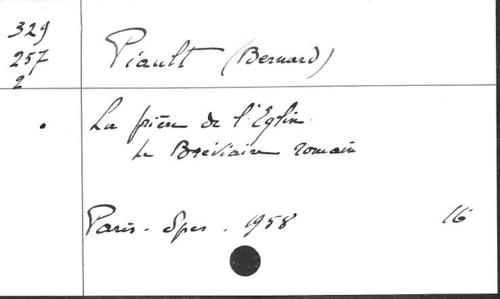 329
257
2
Piault (Bernard)
La prière de l'Eglise.
Le Bréviaire romain
Paris - Spes - 1958 16